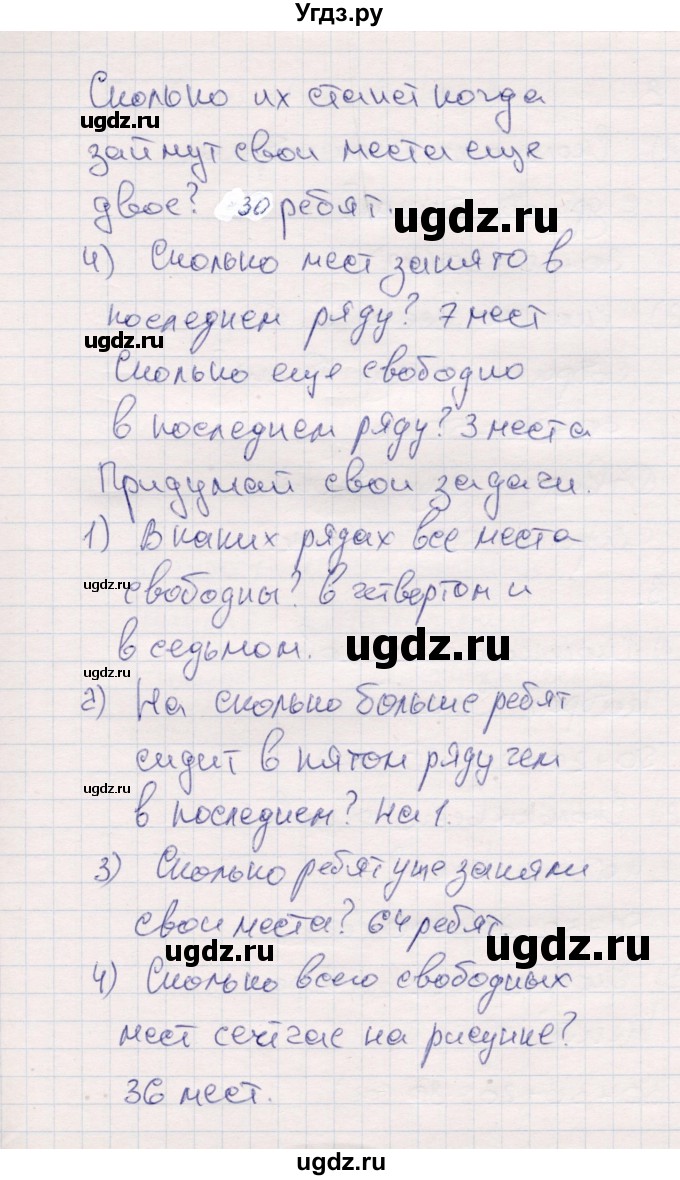 Угдз.ру
Сколько их станет когда
ugdz.ru
займут свои места еще
двое? 30 ребят.
ugdz.ru
4) Сколько мест занято в
последнем ряду? 7 мест
ugdz.ru
Сколько еще свободно
в последнем ряду? 3 места
Придумай свои задачи.
1) В каких рядах все места
ugdz.ru
свободны? в четвертом и
в седьмом.
ugdz.ru
ugdz.ru
2) На сколько больше ребят
сидит в пятом ряду чем
ugdz.ru
в последнем? на 1.
3) Сколько ребят уже заняли
свои места? 64 ребят.
ugdz.ru
ugdz.ru
4) Сколько всего свободных
мест сейчас на рисунке?
36 мест.
ugdz.ru